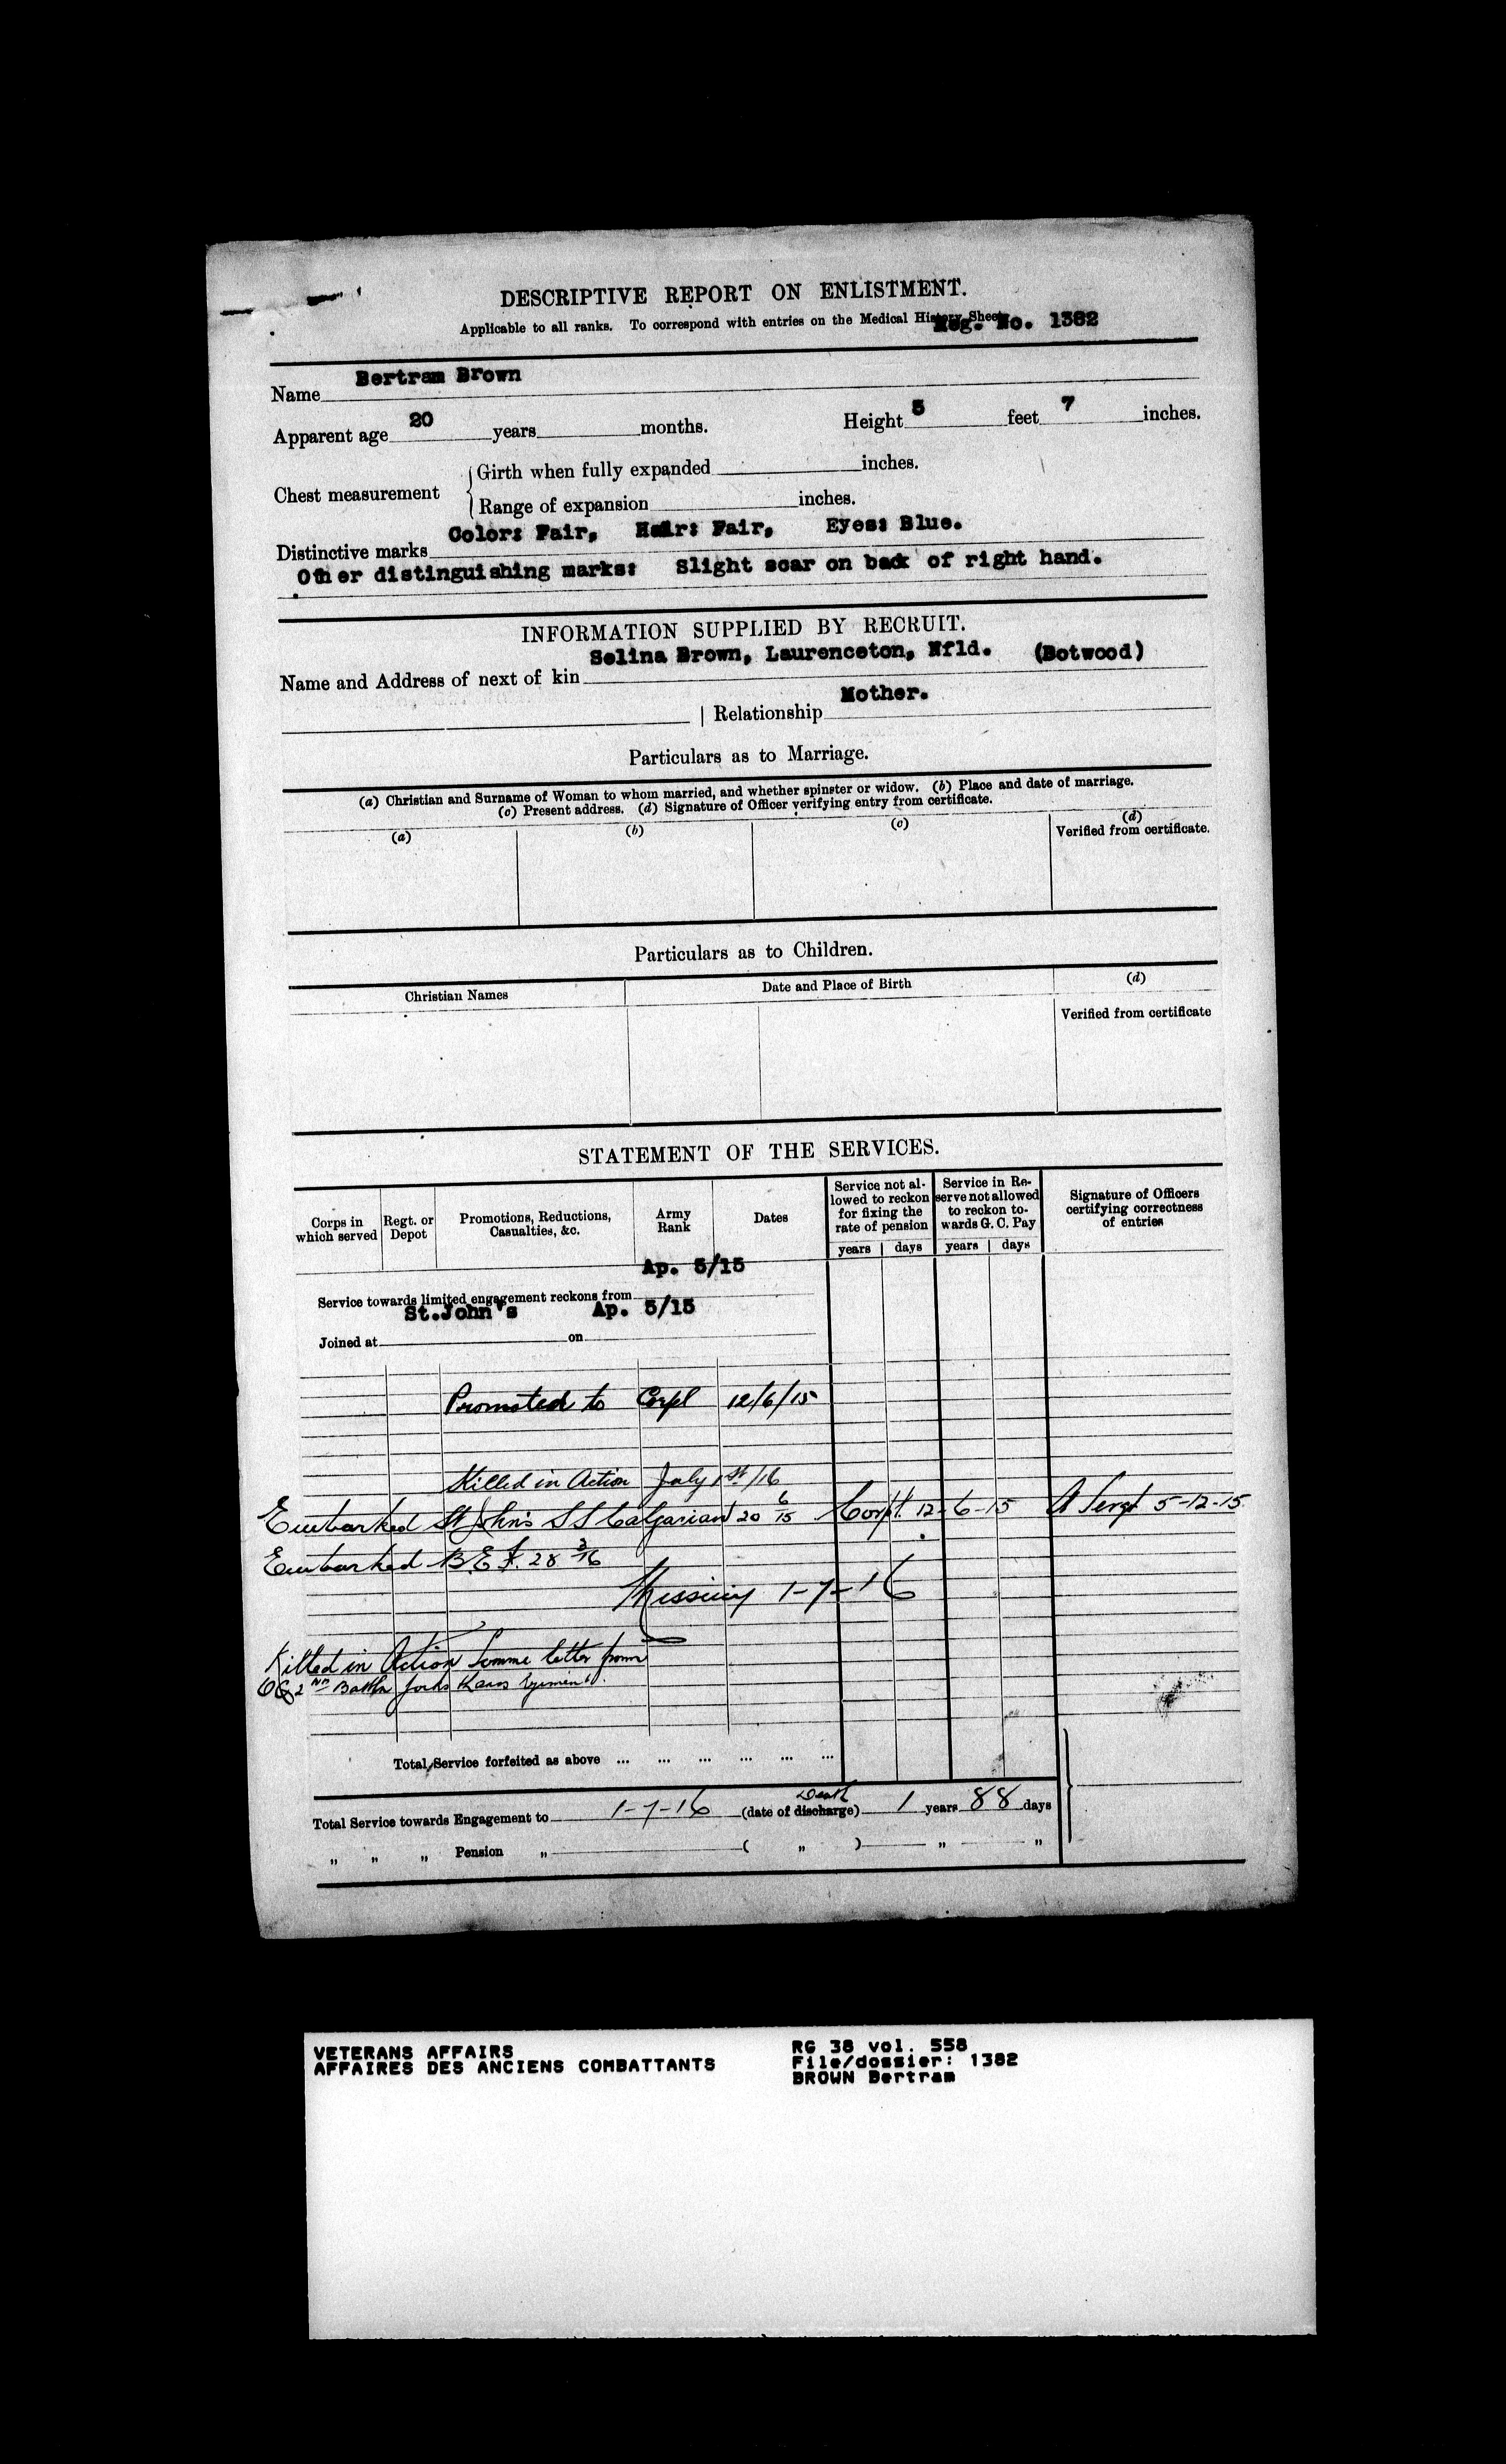 DESCRIPTIVE REPORT ON ENLISTMENT.
Applicable to all ranks. To correspond with entries on the Medical History Sheet. Reg. No. 1382
Name Bertram Brown
Apparent age 20 years months. Height 5 feet 7 inches.
Chest measurement
Girth when fully expanded inches.
Range of expansion inches.
Distinctive marks Color: Fair, Hair: Fair, Eyes: Blue.
Other distinguishing marks: Slight scar on back of right hand.
INFORMATION SUPPLIED BY RECRUIT.
Name and Address of next of kin Selina Brown, Laurenceton, Nfld. (Botwood)
Relationship Mother.
Particulars as to Marriage.
(a) Christian and Surname of Woman to whom married, and whether spinster or widow. (b) Place and date of marriage.
(c) Present address. (d) Signature of Officer verifying entry from certificate.
(a) (b) (c) (d)
Verified from certificate.
Particulars as to Children.
Christian Names Date and Place of Birth (d)
Verified from certificate
STATEMENT OF THE SERVICES.
Corps in which served Regt. or Depot Promotions, Reductions, Casualties, &c. Army Rank Dates Service not allowed to reckon for fixing the rate of pension Service in Reserve not allowed to reckon towards G. C. Pay Signature of Officers certifying correctness of entries
years days years days
Service towards limited engagement reckons from Ap. 5/15
Joined at St.John's on Ap. 5/15
Promoted to Corpl 12/6/15
Killed in Action July 1st/16
Embarked St John's S S Calgarian 20 6/15 Corpl. 12-6-15 A Sergt 5-12-15
Embarked B.E.F. 28 3/16
Missing 1-7-16
Killed in Action Somme letter from
OC 2nd Battn
Total Service forfeited as above ... ... ... ... ... ...
Total Service towards Engagement to 1-7-16 (date of discharge) Death 1 years 88 days
" " " Pension " ( " ) " "
VETERANS AFFAIRS
AFFAIRES DES ANCIENS COMBATTANTS
RG 38 vol. 558
File/dossier: 1382
BROWN Bertram